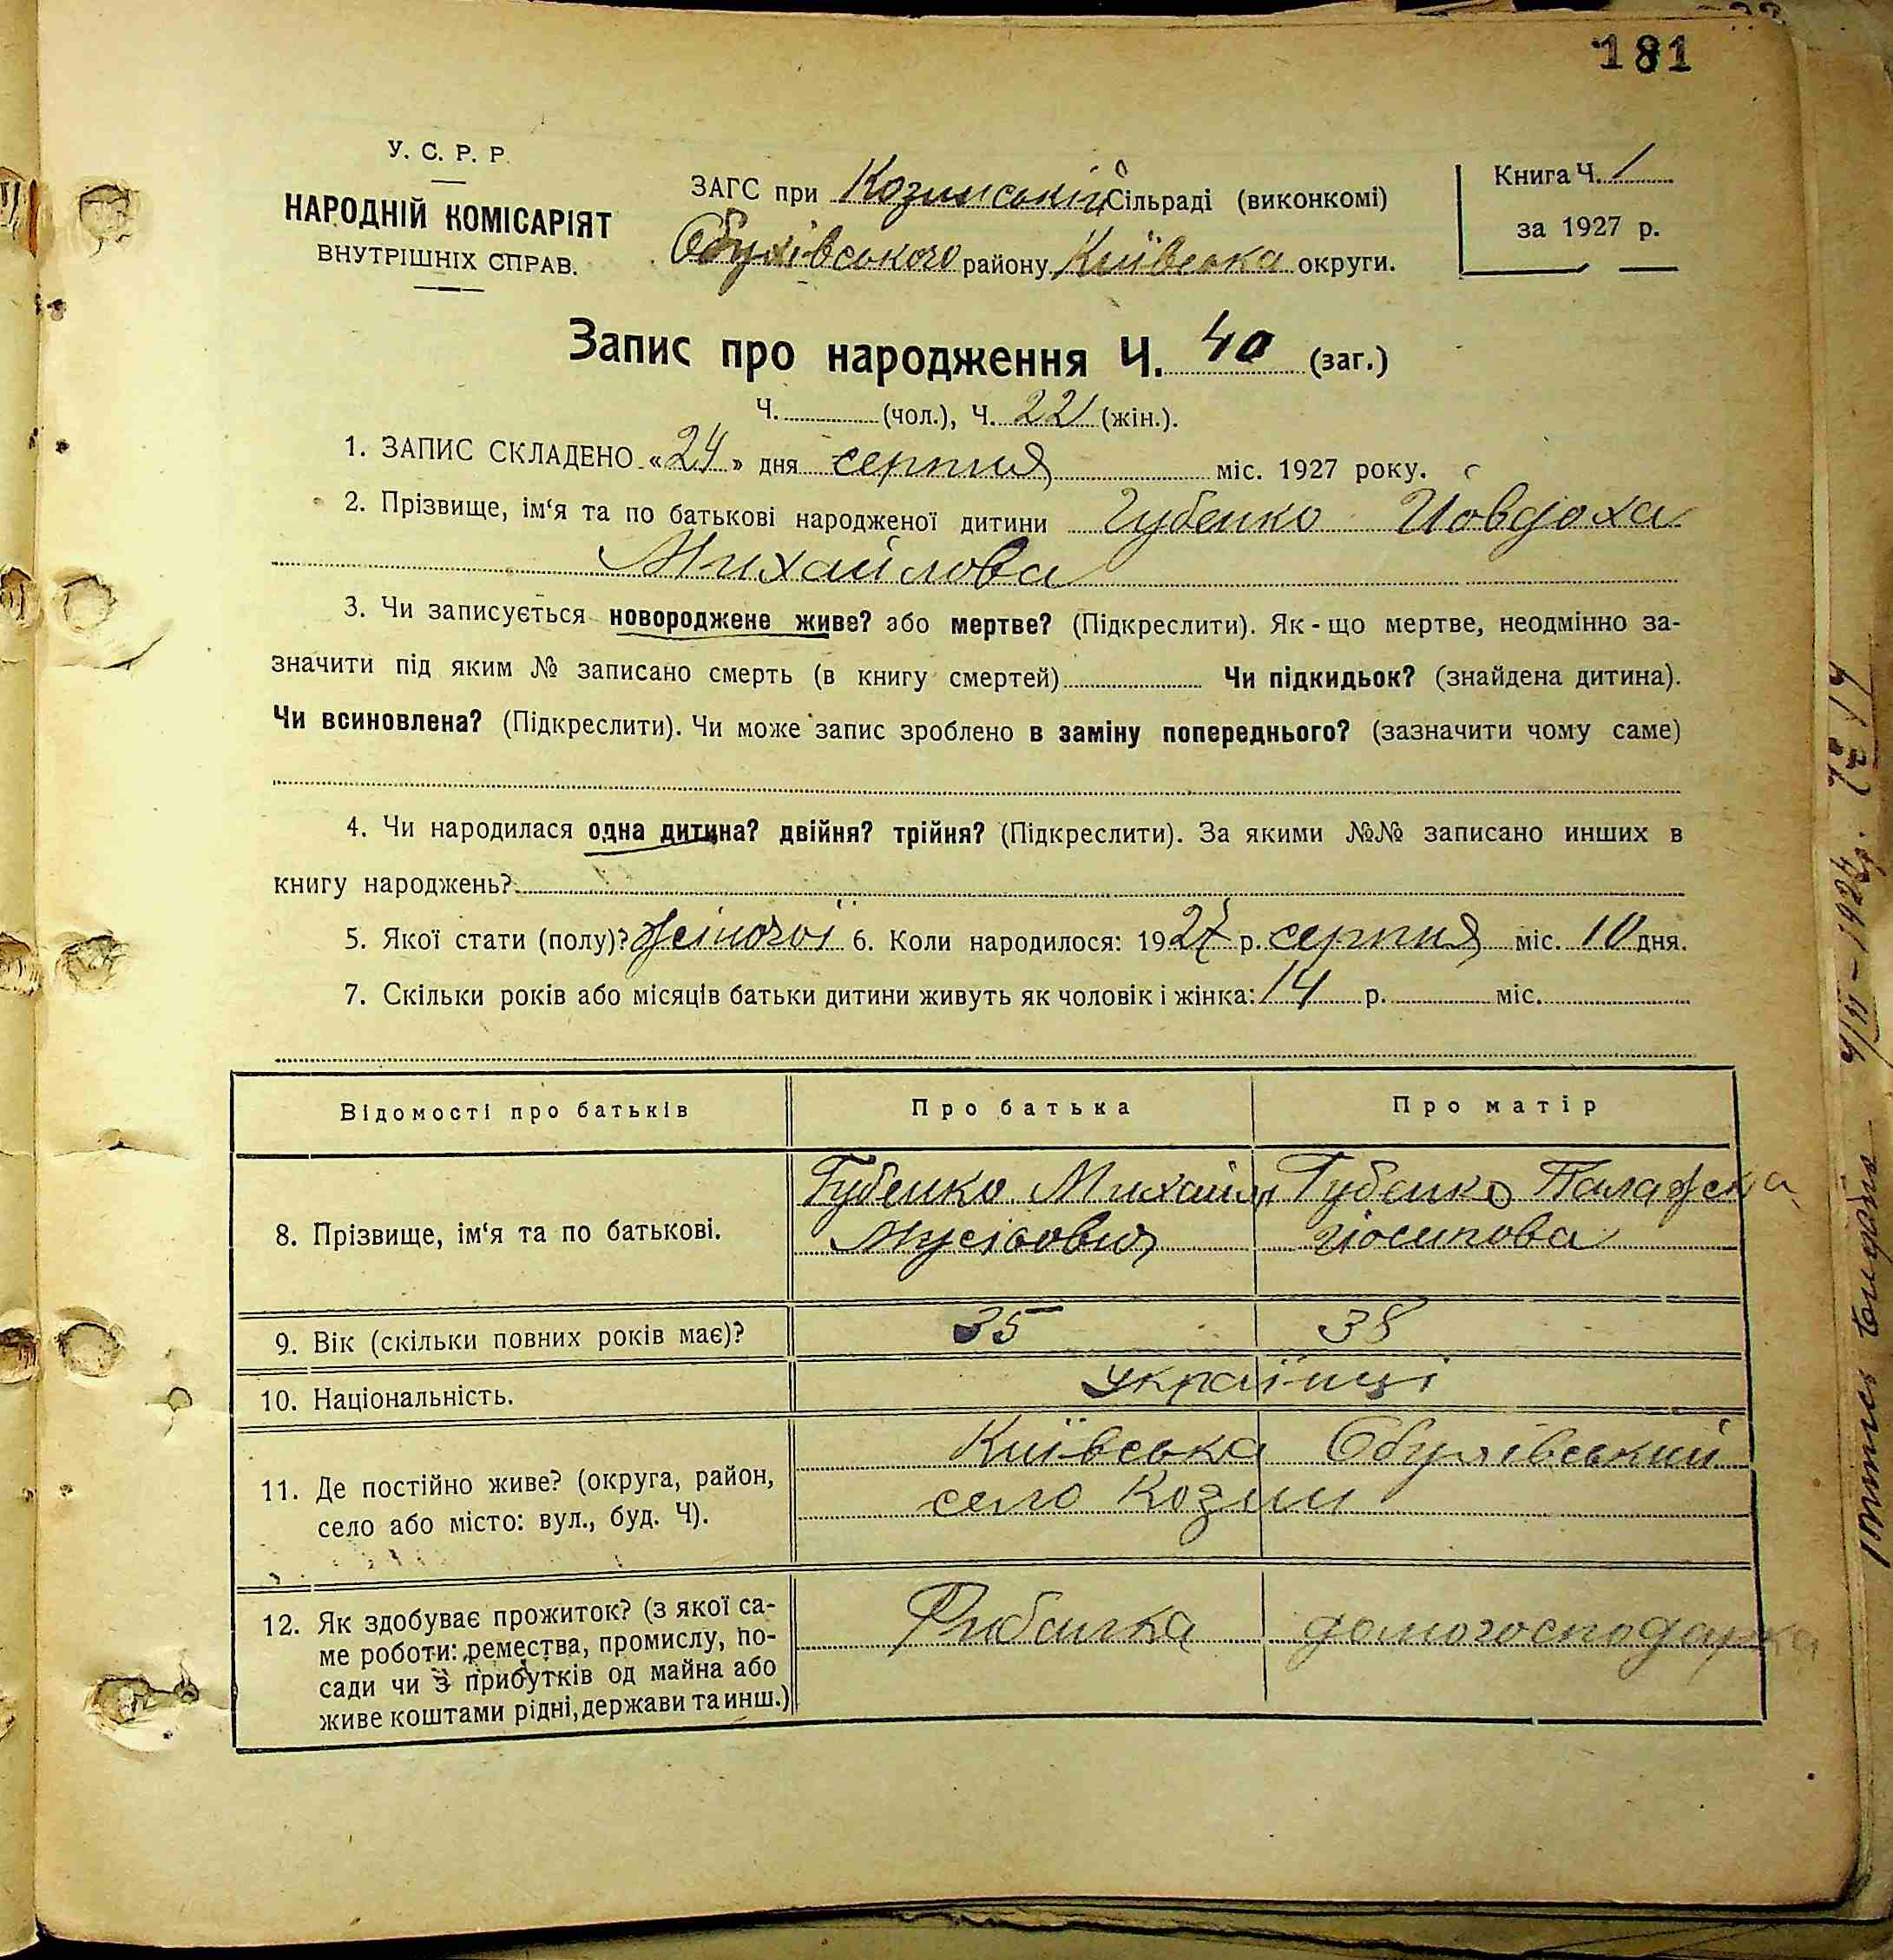 181
У. С. Р. Р.
НАРОДНІЙ КОМІСАРІЯТ
ВНУТРІШНІХ СПРАВ.
ЗАГС при Козинській Сільраді (виконкомі)
Обухівського району Київська округи.
Книга Ч. 1
за 1927 р.
Запис про народження Ч. 40 (заг.)
Ч. (чол.), Ч. 22 (жін.).
1. ЗАПИС СКЛАДЕНО «24» дня серпня міс. 1927 року.
2. Прізвище, ім‘я та по батькові народженої дитини Губенко Иовдоха
Михайлова
3. Чи записується новороджене живе? або мертве? (Підкреслити). Як-що мертве, неодмінно за-
значити під яким № записано смерть (в книгу смертей) Чи підкидьок? (знайдена дитина).
Чи всиновлена? (Підкреслити). Чи може запис зроблено в заміну попереднього? (зазначити чому саме)
4. Чи народилася одна дитина? двійня? трійня? (Підкреслити). За якими №№ записано инших в
книгу народжень?
5. Якої стати (полу)? жіночої 6. Коли народилося: 1927 р. серпня міс. 10 дня.
7. Скільки років або місяців батьки дитини живуть як чоловік і жінка: 14 р. міс.
Відомості про батьків Про батька Про матір
8. Прізвище, ім‘я та по батькові.
Губенко Михайло Губенко Палажска
Мусієович Йосипова
9. Вік (скільки повних років має)? 35 38
10. Національність. Українці
11. Де постійно живе? (округа, район,
село або місто: вул., буд. Ч).
Київська Обухівський
село Козин
12. Як здобуває прожиток? (з якої са-
ме роботи: ремества, промислу, по-
сади чи з прибутків од майна або
живе коштами рідні, держави та инш.)
Рибалка домогосподарка